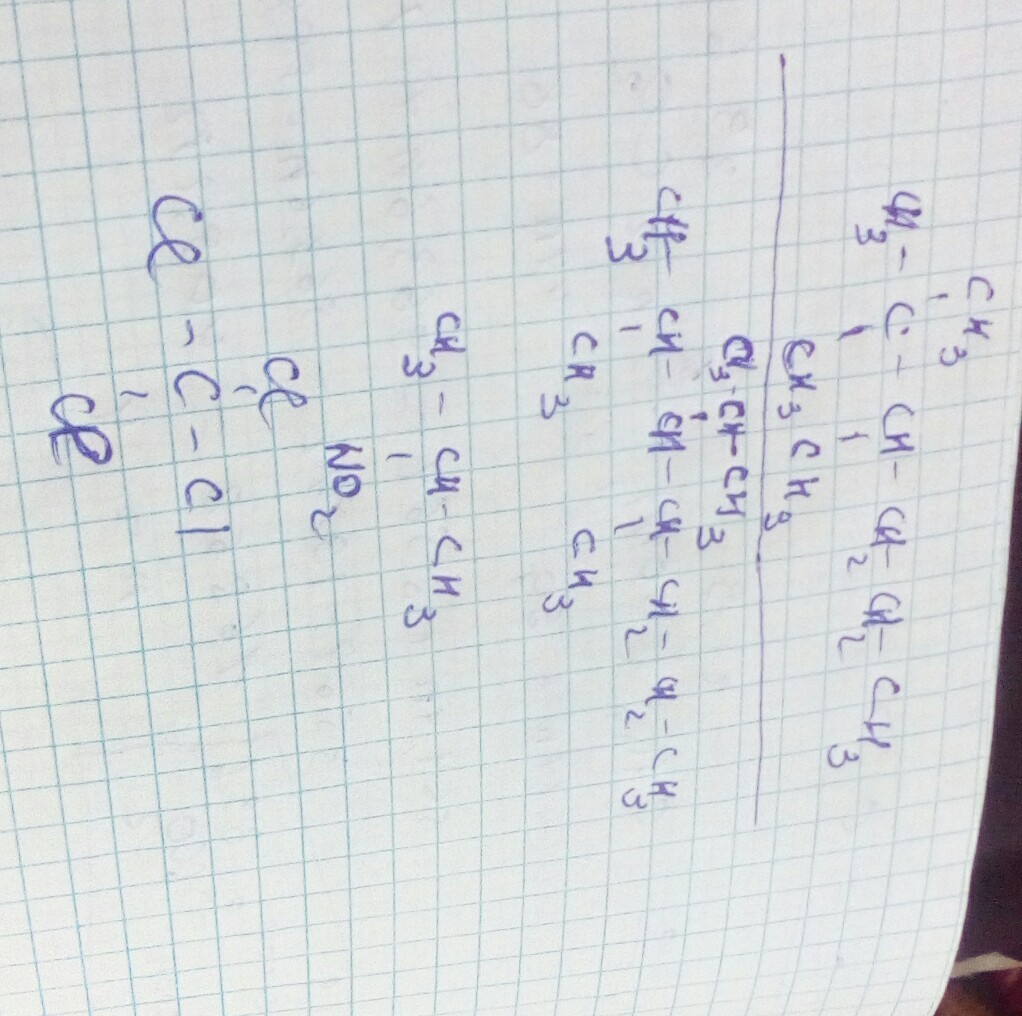 CH3
CH3 - C - CH - CH2 - CH2 - CH3
CH3 CH3
CH3 - CH - CH3
CH3 - CH - CH - CH - CH2 - CH2 - CH3
CH3 CH3
CH3 - CH - CH3
NO2
Cl
Cl - C - Cl
Cl